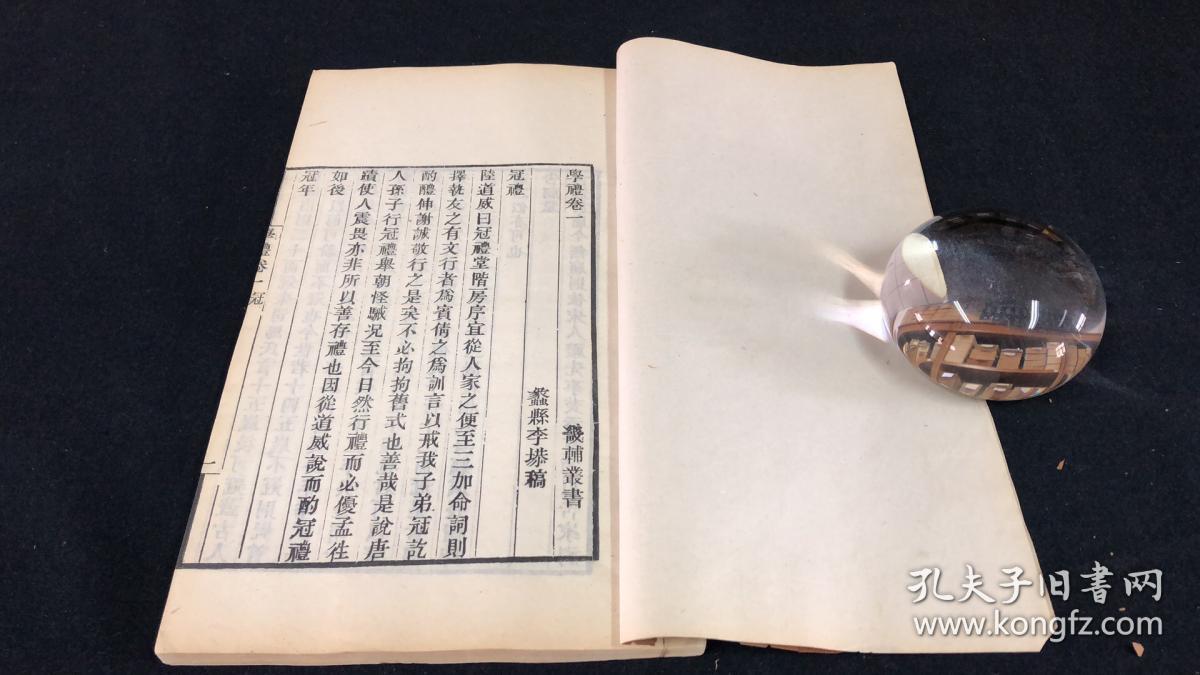 學禮卷一
畿輔叢書
蠡縣李塨稿
冠禮
陸道威曰冠禮堂階房序宜從人家之便至三加命詞則
擇執友之有文行者爲賓倩之爲訓言以戒我子弟冠訖
酌醴伸謝誠敬行之是矣不必拘拘舊式也善哉是說唐
人孫子行冠禮舉朝怪駴况至今日然行禮而必優孟往
蹟使人震畏亦非所以善存禮也因從道威說而酌冠禮
如後
冠年
學禮卷一 冠
一
孔夫子旧书网
www.kongfz.com